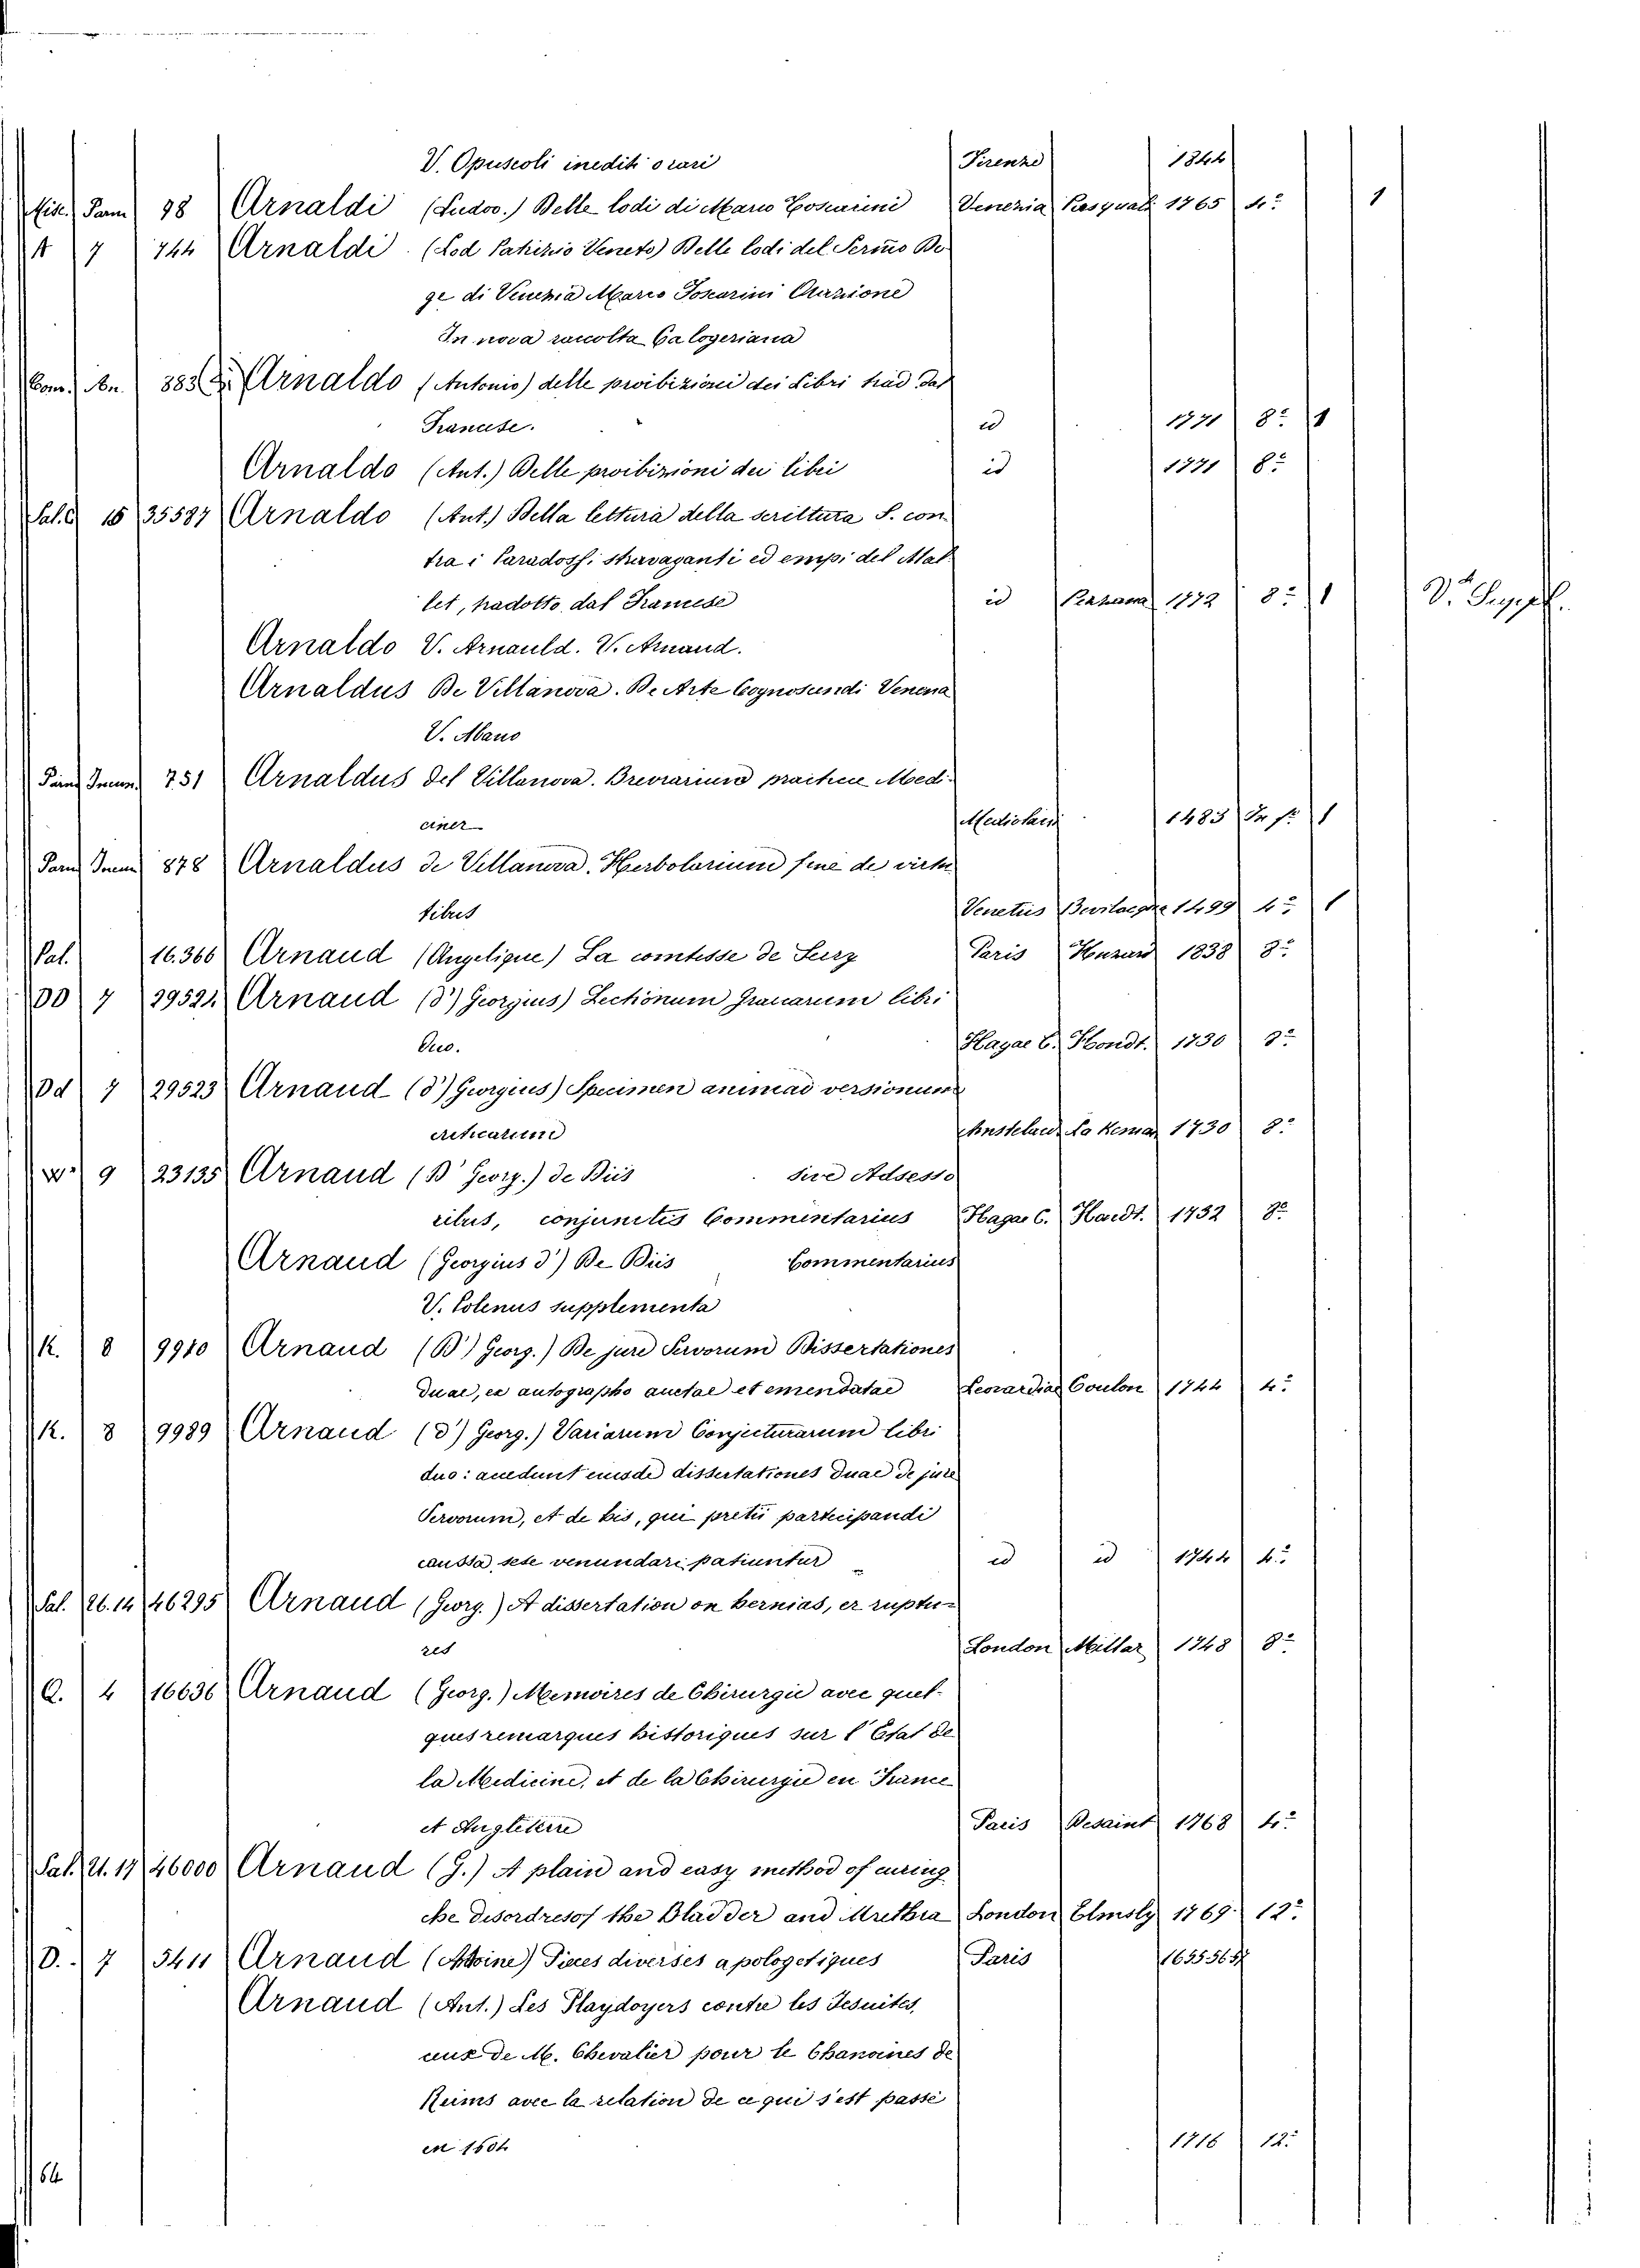 V. Opuscoli inediti o rari Firenze 1844
Parm 98 Arnaldi (Ludov.) Delle lodi di Marco Foscarini Venezia Pasquali 1765 4º 1
A 7 744 Arnaldi (Lod Patrizio Veneto) Delle lodi del Sermo Do
ge di Venezia Marco Foscarini Orazione
In nova raccolta Calogeriana
383 Arnaldo (Antonio) delle proibizioni dei Libri trad dal
Francese. id 1771 8º 1
Arnaldo (Ant.) Delle proibizioni dei libri id 1771 8º
15 35587 Arnaldo (Ant.) Della lettura della scrittura S. con
tra i Paradossi stravaganti ed empi del Mal
let, tradotto dal Francese id 1772 8º 1 V. Suppl.
Arnaldo V. Arnauld. V. Arnaud.
Arnaldus De Villanova. De Arte Cognoscendi Venena
V. Abano
Parm Incun. 751 Arnaldus del Villanova. Breviarium prachice Medi
ciner Mediolani 1483 In fº 1
Parm Incun 878 Arnaldus de Villanova. Herbolarium sine de virtu
tibus Venetiis Bevilacqua 1499 4º 1
Pal. 16.366 Arnaud (Angelique) La comtesse de Serg Paris Huzard 1838 8º
DD 7 29524 Arnaud (D') Georgius) Lectionum Graecarum libri
Duo. Hagae C. Hondt. 1730 8º
Dd 7 29523 Arnaud (D') Georgius) Specimen animad versionum
criticarum Amstelaed. La Kemar 1730 8º
9 23135 Arnaud (D' Georg.) De Diis sive Adsesso
ribus, conjunctis Commentarius Hagae C. Hardt. 1732 8º
Arnaud (Georgius D') De Diis Commentarius
V. Polenus supplementa
K. 8 9910 Arnaud (D') Georg.) De jure Servorum Dissertationes
duae, ex autographo auctae et emendatae Leovardiae Coulon 1744 4º
K. 8 9989 Arnaud (D') Georg.) Variarum Conjecturarum libri
duo: accedunt eiusde dissertationes duae de jure
Servorum, et de his, qui pretii participandi
caussa sese venundari patiuntur id id 1744 4º
Pal. 26.14 46295 Arnaud (Georg.) A dissertation on hernias, or ruptu-
res London Millar 1748 8º
Q. 4 16636 Arnaud (Georg.) Memoires de Chirurgie avec quel-
ques remarques historiques sur l'Etat de
la Medicine, et de la Chirurgie en France
et Angleterre Paris Desaint 1768 4º
Pal. 21.17 46000 Arnaud (G.) A plain and easy method of curing
the disordres of the Bladder and Urethra London Elmsly 1769 12º
D. 7 5411 Arnaud (Antoine) Pieces diverses apologetiques Paris 1655 56 57
Arnaud (Ant.) Les Playdoyers contre les Jesuites,
ceux de M. Chevalier pour le Chanoines de
Reims avec la relation de ce qui s'est passé
en 1504 1716 12º
64